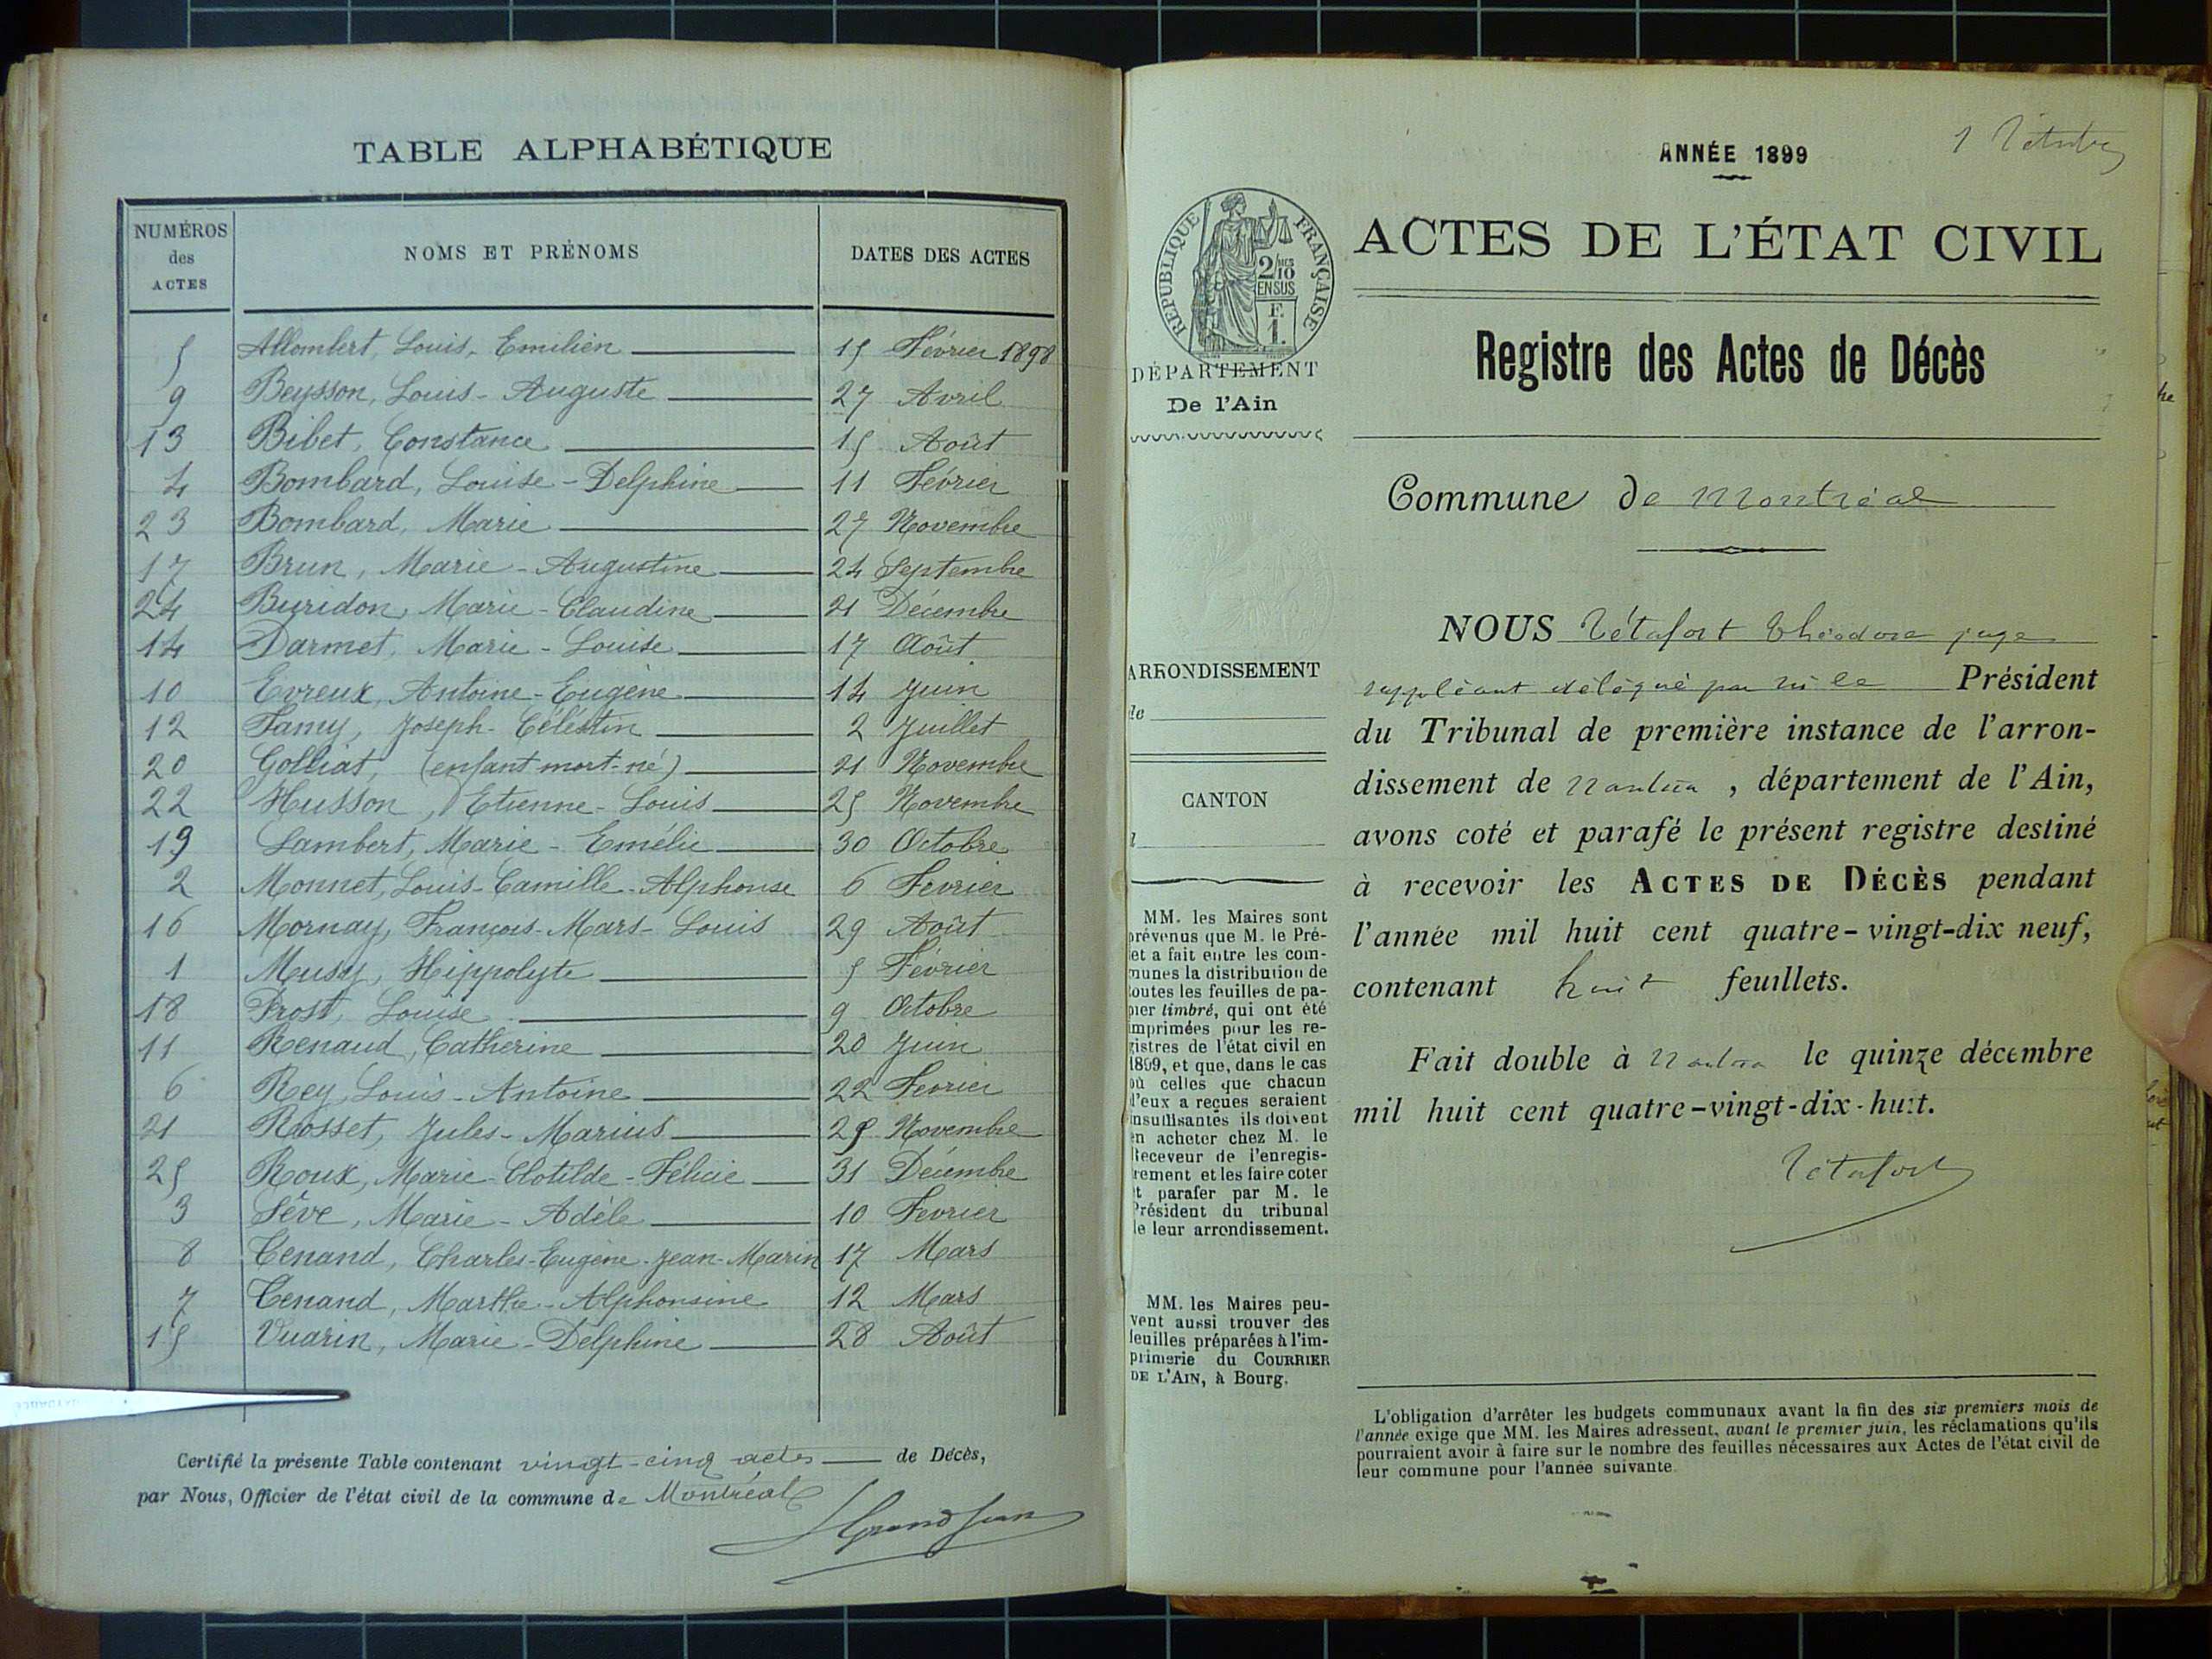 TABLE ALPHABÉTIQUE
NUMÉROS des ACTES NOMS ET PRÉNOMS DATES DES ACTES
5 Allombert, Louis, Emilien 15 Février 1898
9 Beysson, Louis-Auguste 27 Avril
13 Bibet, Constance 15 Août
4 Bombard, Louise-Delphine 11 Février
23 Bombard, Marie 27 Novembre
17 Brun, Marie-Augustine 24 Septembre
24 Buridon, Marie-Claudine 21 Décembre
14 Darmet, Marie-Louise 17 Août
10 Evreux, Antoine-Eugène 14 Juin
12 Famy, Joseph-Célestin 2 Juillet
20 Golliat, (enfant mort-né) 21 Novembre
22 Husson, Etienne-Louis 25 Novembre
19 Lambert, Marie-Emélie 30 Octobre
2 Monnet, Louis-Camille-Alphonse 6 Fevrier
16 Mornay, François-Mars-Louis 29 Août
1 Musy, Hippolyte 5 Février
18 Prost, Louise 9 Octobre
11 Renaud, Catherine 20 Juin
6 Rey, Louis-Antoine 22 Fevrier
21 Rosset, Jules-Marius Novembre
25 Roux, Marie-Clotilde-Félicie 31 Décembre
3 Sève, Marie-Adèle 10 Fevrier
8 Tenand, Charles-Eugène-Jean-Marin 17 Mars
7 Tenand, Marthe-Alphonsine 12 Mars
15 Vuarin, Marie-Delphine 28 Août
Certifié la présente Table contenant vingt-cinq actes de Décès,
par Nous, Officier de l'état civil de la commune de Montréal
Grandjean
1 Tétafort
ANNÉE 1899
RÉPUBLIQUE FRANÇAISE
2/10 MES
EN SUS
F.
1.
DÉPARTEMENT
De l'Ain
ARRONDISSEMENT
de
CANTON
MM. les Maires sont
prévenus que M. le Pré-
et a fait entre les com-
munes la distribution de
toutes les feuilles de pa-
pier timbré, qui ont été
imprimées pour les re-
gistres de l'état civil en
1899, et que, dans le cas
où celles que chacun
d'eux a reçues seraient
insuffisantes ils doivent
en acheter chez M. le
Receveur de l'enregis-
trement et les faire coter
et parafer par M. le
Président du tribunal
de leur arrondissement.
MM. les Maires peu-
vent aussi trouver des
feuilles préparées à l'im-
primerie du COURRIER
DE L'AIN, à Bourg.
ACTES DE L'ÉTAT CIVIL
Registre des Actes de Décès
Commune de Montréal
NOUS Tétafort Théodore juge
suppléant délégué par Mr le Président
du Tribunal de première instance de l'arron-
dissement de Nantua, département de l'Ain,
avons coté et parafé le présent registre destiné
à recevoir les ACTES DE DÉCÈS pendant
l'année mil huit cent quatre-vingt-dix neuf,
contenant huit feuillets.
Fait double à Nantua le quinze décembre
mil huit cent quatre-vingt-dix-huit.
Tétafort
L'obligation d'arrêter les budgets communaux avant la fin des six premiers mois de
l'année exige que MM. les Maires adressent, avant le premier juin, les réclamations qu'ils
pourraient avoir à faire sur le nombre des feuilles nécessaires aux Actes de l'état civil de
leur commune pour l'année suivante.